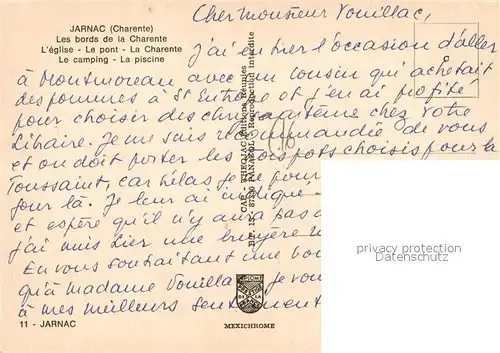 JARNAC (Charente)
Les bords de la Charente
L'église - Le pont - La Charente
Le camping - La piscine
Cher Monsieur Vouillac,
J'ai eu hier l'occasion d'aller
à Montmoreau avec un cousin qui achetait
des pommes à St Eutrope et j'en ai profité
pour choisir des chrysanthème chez votre
Libaire. Je me suis recommandée de vous
et on doit porter les trois pots choisis pour la
Toussaint, car hélas je ne pour
jour là. Je leur ai indiqué
et espère qu'il n'y aura pas d
j'ai mis hier une bruyère
En vous souhaitant une bo
qu'à madame Vouilla je vou
à mes meilleurs sentiment
CAP - THEOJAC Editions Réunies
BP. 15. 87350 PANAZOL Reproduction interdite
10
privacy protection
Datenschutz
11 - JARNAC
MEXICHROME